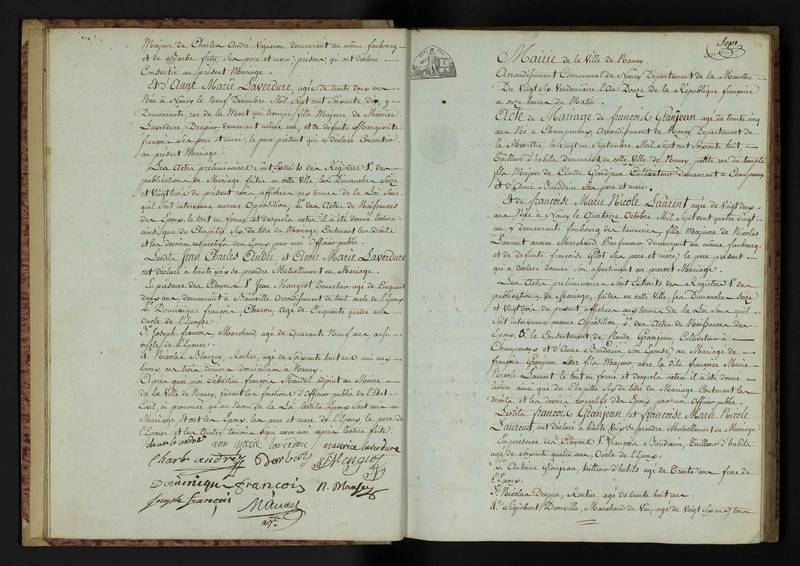 Majeur de Charles André Vigneron demeurant au même faubourg
et de Barbe fity, ses pere et mere, présens qui ont déclaré
Consentir au présent Mariage.
Et d'Anne Marie Laverdure, agée de trente deux ans
Née à Nancy le Neuf Decembre Mil Sept cent Soixante dix, y
Demeurante, rue de la fille Majeure de Maurice
Laverdure Drapier demeurant même rue, et de défunte Marguerite
françois Ses pere et mere, le pere présent qui a déclaré Consentir
au présent Mariage.
Les Actes préliminaires sont Extraits des Registres 1° des
publications de Mariage faites en cette Ville les Dimanches Seize
et Vingttrois du présent mois affichées aux termes de la Loi Sans
qu'il soit intervenu aucune Opposition, 2° des Actes de Naissances
des Epoux, le tout en forme, et desquels actes il a été donné lecture
ainsi que du Chapitre Six du titre du Mariage Contenant les droits
et les devoirs respectifs des Epoux par moi Officier public.
Lesdits Jean Charles André et Anne Marie Laverdure
ont déclaré à haute voix se prendre Mutuellement en Mariage.
En présence des Citoyens 1° Jean Mangeot agé de Cinquante
deux ans demeurant à Arrondissement de toul oncle de l'Epoux
2° Dominique françois Agé de Cinquante quatre ans
Oncle de l'Epouse
3° Joseph francois Marchand, agé de Quarante Neuf ans aussi
oncle de l'Epouse
4° Nicolas Rentier, agé de Soixante huit ans ami des
Epoux, ces trois derniers domiciliés à Nancy.
Et après quoi moi Sébastien françois Maudel adjoint au Maire
de la Ville de Nancy, faisant les fonctions d'Officier public de l'Etat
Civil, ai prononcé qu'au Nom de la Loi lesdits Epoux sont unis en
Mariage. Et ont les Epoux, les pere et mere de l'Epoux, le pere de
l'Epouse et les quatre témoins signé avec moi après lecture faite.
anne marie laverdure maurice laverdure
Charle andrez
Dominique françois N.
Joseph françois Maudel
adj.
Sept
Mairie de la Ville de Nancy
Arrondissement Communal de Nancy Département de la Meurthe
Du Vingt Six Vendémiaire L'An Douze de la République françoise
à onze heures du Matin.
Acte de Mariage de françois Granjean agé de trente cinq
ans Né à Champenoux, Arrondissement de Nancy, Département de
la Meurthe, le vingt un Septembre Mil Sept cent Soixante huit,
Tailleur d'habits demeurant en cette Ville de Nancy, petite rue du temple
fils Majeur de Claude Granjean Cultivateur demeurant à Champenoux
et d'Anne Baudouin Ses pere et mere.
Et de françoise Marie Nicole Laurent agée de Vingt deux
ans Née à Nancy le Quatorze Octobre Mil Sept cent quatre vingt
un, y demeurante faubourg des tanneries, fille Majeure de Nicolas
Laurent ancien Marchand Parfumeur demeurant au même faubourg,
et de défunte françoise Ses pere et mere, le pere présent
qui a déclaré donner son assentiment au présent Mariage.
Les Actes préliminaires sont Extraits des Registres 1° des
publications de Mariage, faites en cette Ville les Dimanches Seize
et Vingt trois du présent affichées aux termes de la Loi Sans qu'il
soit intervenu aucune Opposition, 2° des Actes de Naissance des
Epoux, 3° du Consentement de Claude Granjean Cultivateur à
Champenoux et d'Anne Baudouin Son Epouse, au Mariage de
françois Granjean leur fils Majeur, avec la Dlle françoise Marie
Nicole Laurent, le tout en forme et desquels actes il a été donné
lecture ainsi que du Chapitre Six du titre du Mariage Contenant les
droits et les devoirs respectifs des Epoux, par moi Officier public.
Lesdits françois Granjean et françoise Marie Nicole
Laurent, ont déclaré à haute voix se prendre Mutuellement en Mariage
En présence des Citoyens 1° françois Baudouin, Tailleur d'habits
agé de Soixante quatre ans Oncle de l'Epoux.
2° Antoine Granjean, tailleur d'habits agé de Trente ans frere de
l'Epoux.
3° Nicolas Rentier, agé de trente huit ans
4° Sigisbert Marchand de Vin, agé de Vingt Sept ans